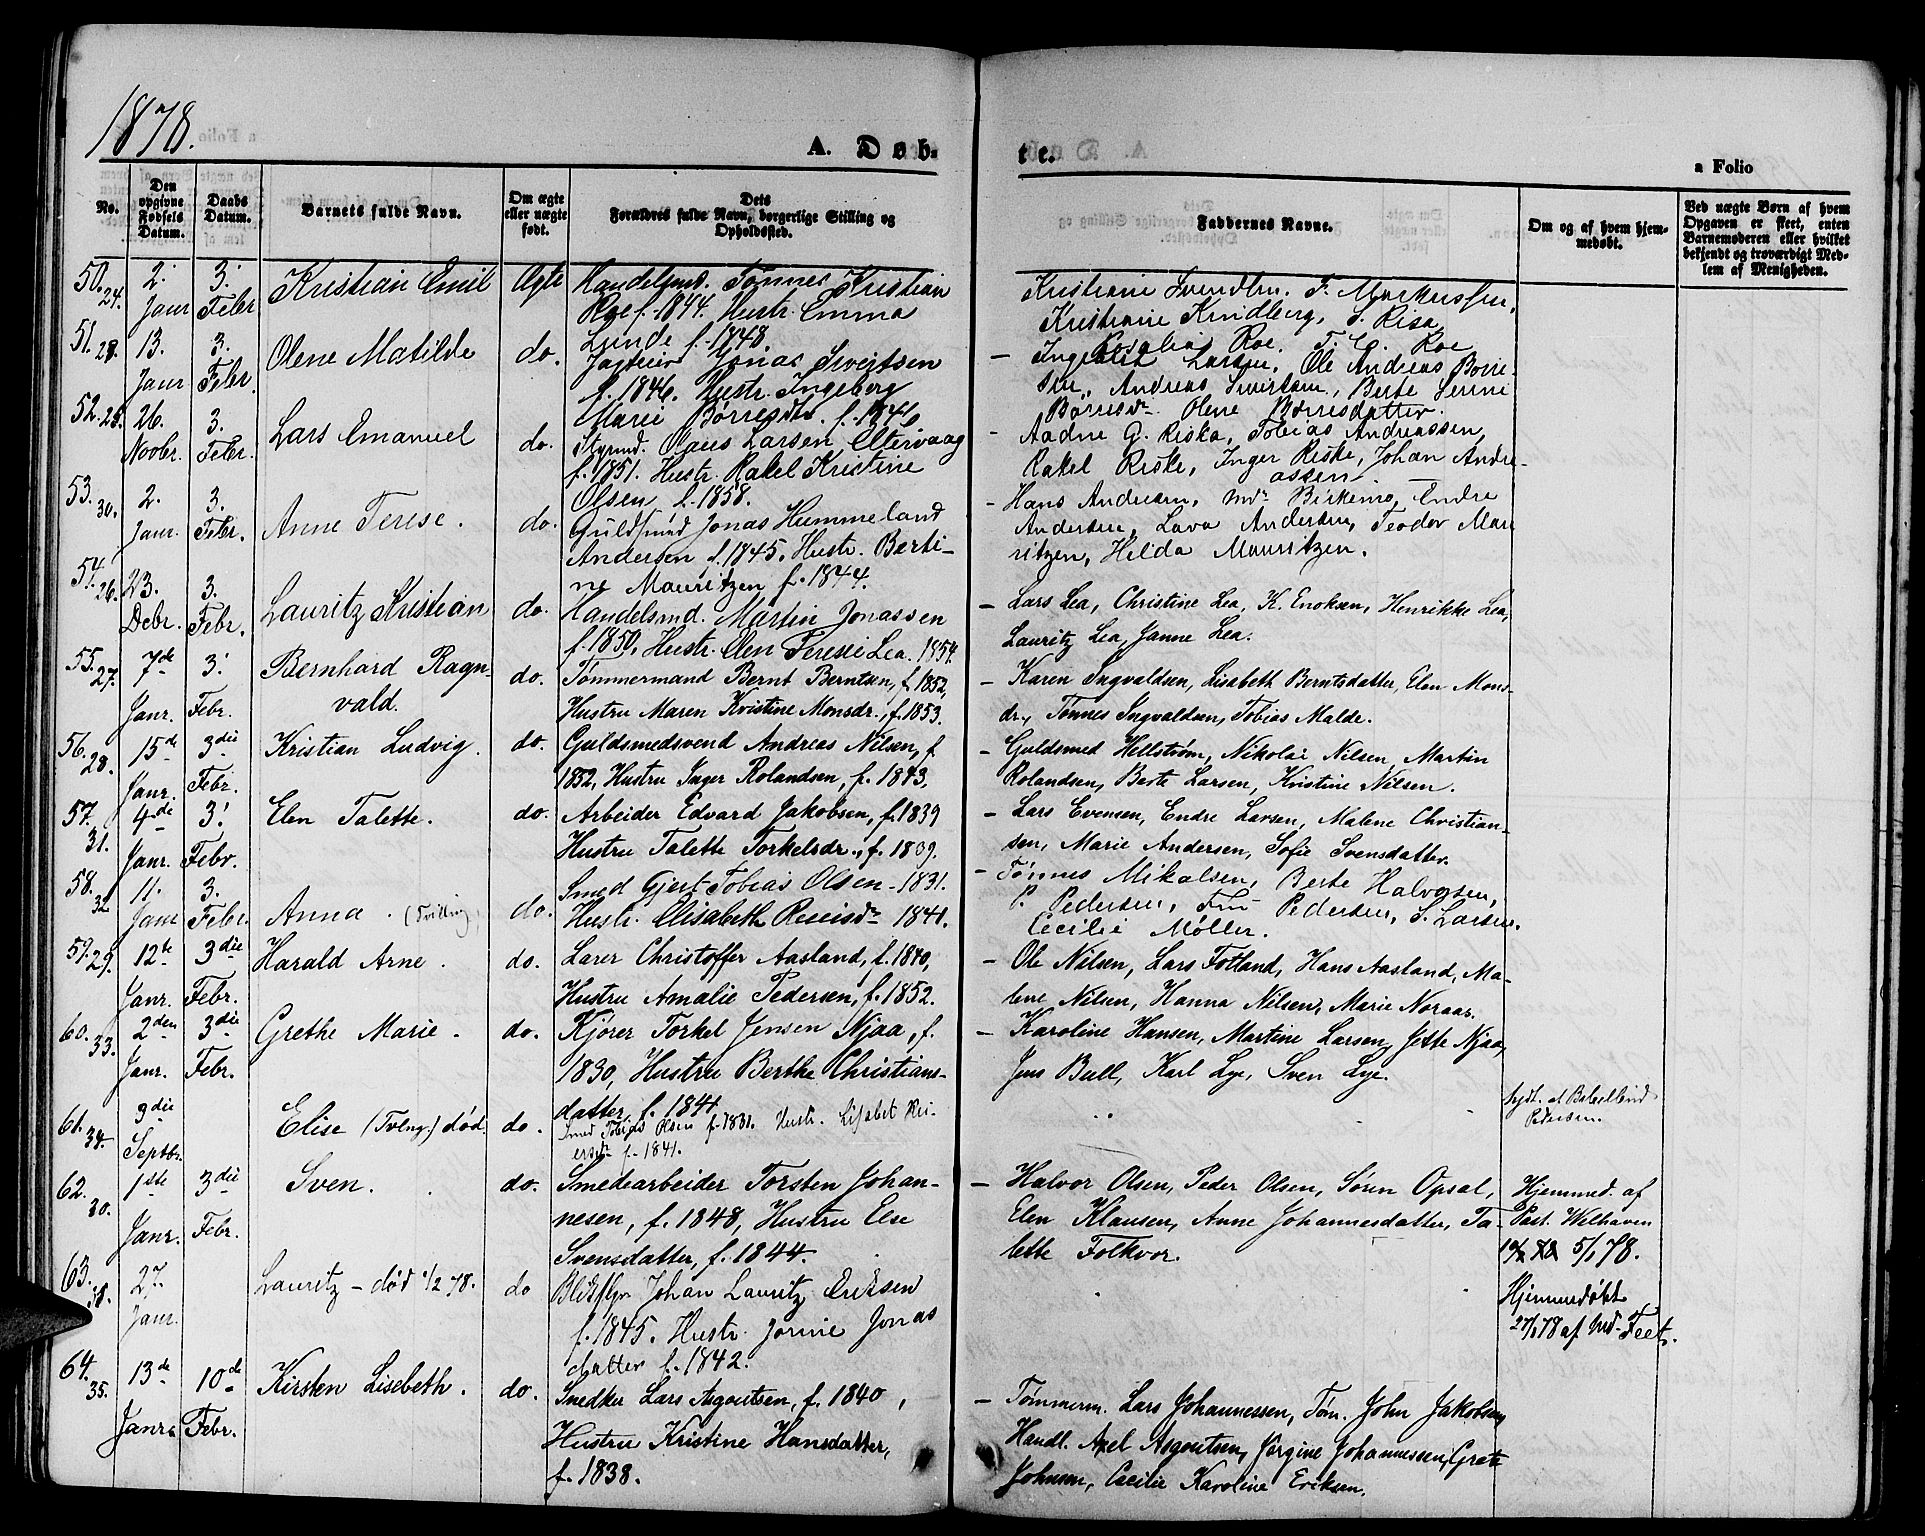 1878.
A. Døb-
te.
a Folio
No.
Den opgivne Fødsels Datum.
Daabs Datum.
Barnets fulde Navn.
Om ægte eller uægte født.
Dets Forældres fulde Navn, borgerlige Stilling og Opholdssted.
Faddernes Navne.
Om og af hvem hjemmedøbt.
Ved uægte Børn af hvem Opgaven er skeet, enten Barnemoderen eller hvilket bekjendt og troværdigt Medlem af Menigheden.
50. 24. 2. Janr 3. Febr Kristian Emil Ægte Handelsmd. Tønnes Kristian
Roe f. 1844. Hustr. Emma
Lunde f. 1848.
Kristiane Svendsen. T. Markussen,
Kristiane Kindberg, S. Risa,
Rosalia Roe, T. C. Roe
51. 28. 13. Janr 3. Febr. Olene Matilde do. Jagteier Jonas Sveitsen
f. 1846. Hustr. Ingeborg
Marie Børresdtr. f. 1846
— Ingeborg Larsen, Ole Andreas Børre-
sen, Andreas Berte Serine
Børresdr. Olene Børresdatter.
52. 25. 26. Novbr. 3. Febr. Lars Emanuel do. Styrmd. Olaus Larsen Eltervaag
f. 1851. Hustr. Rakel Kristine
Olsen f. 1858.
- Aadne G. Riska, Tobias Andreassen,
Rakel Riske, Inger Riske, Johan Andre-
assen
53. 30. 2. Janr. 3. Febr. Anne Terese. do. Guldsmed Jonas Hummeland
Andersen f. 1845. Hustr. Berti-
ne Mauritzen f. 1844.
- Hans Andersen, Birkemo, Endre
Andersen, Lava Andersen, Teodor Mau-
ritzen, Hilda Mauritzen.
54. 26. 23. Debr. 3. Febr. Lauritz Kristian do. Handelsmd. Martin Jonassen
f. 1850. Hustr. Elen Teresie Lea. 1854.
— Lars Lea, Christine Lea, K. Enoksen, Henrikke Lea,
Lauritz Lea, Janne Lea.
55. 27. 7de Janr. 3. Febr. Bernhard Ragn-
vald. do. Tømmermand Bernt Berntsen, f. 1852,
Hustru Maren Kristine Monsdr., f. 1853.
— Karen Ingvaldsen, Lisabeth Berntsdatter, Elen Mons-
dr., Tønnes Ingvaldsen, Tobias Malde.
56. 28. 15de Janr. 3die Febr. Kristian Ludvig. do. Guldsmedsvend Andreas Nilsen, f.
1852, Hustru Inger Rolandsen, f. 1843.
— Guldsmed Hellstrøm, Nikolai Nilsen, Martin
Rolandsen, Berte Larsen, Kristine Nilsen.
57. 31. 4de Janr. 3. Febr. Elen Talette. do. Arbeider Edvard Jakobsen, f. 1839
Hustru Talette Torkelsdr., f. 1839.
— Lars Evensen, Endre Larsen, Malene Christian-
sen, Marie Andersen, Sofie Svensdatter.
58. 32 11. Janr 3. Febr. Anna. (Tvilling) do. Smed Gjert Tobias Olsen - 1831.
Hustr. Elisabeth 1841.
— Tønnes Mikalsen, Berte Halvorsen,
P. Pedersen, Fru Pedersen, S. Larsen.
Cecilie Møller.
59. 29. 12te Janr. 3die Febr. Harald Arne. do. Lærer Christoffer Aasland, f. 1840,
Hustru Amalie Pedersen, f. 1852.
— Ole Nilsen, Lars Fotland, Hans Aasland, Ma-
lene Nilsen, Hanna Nilsen, Marie Noraas.
60. 33. 2den Janr. 3die Febr. Grethe Marie. do. Kjører Torkel Jensen Njaa, f.
1830, Hustru Berthe Christians-
datter, f. 1841
— Karoline Hansen, Martine Larsen, Jette Njaa,
Jens Bull, Karl Lye, Sven Lye.
61. 34. 9die Septbr. Elise (Tvlng.) død. do. Smed Tobias Olsen f. 1831. Hustr. Lisabet Rei-
ersdr. f. 1841.
Pedersen.
62. 30. 1ste Janr. 3die Febr. Sven. do. Smedearbeider Torsten Johan-
nesen, f. 1848, Hustru Else
Svensdatter, f. 1844.
— Halvor Olsen, Peder Olsen, Søren Opsal,
Elen Klausen, Anne Johannesdatter, Ta-
lette Folkvor.
Hjemmed. af
Past. Welhaven
5/1 78.
63. 38. 27. Janr. Lauritz - død 1/2 78. do Johan Lauritz Eriksen
f. 1845. Hustr. Jonas
datter f. 1842.
Hjemmedøbt
27/1 78 af Md. Feet.
64. 35. 13de Janr. 10de Febr. Kirsten Lisebeth. do. Snedker Lars Asgoutsen, f. 1840,
Hustru Kristine Hansdatter,
f. 1838.
— Tømmerm. Lars Johannessen, Tøm. John Jakobsen,
Handl. Axel Asgoutsen, Jørgine Johannessen, Grete
Johnsen, Cecilie Karoline Eriksen.